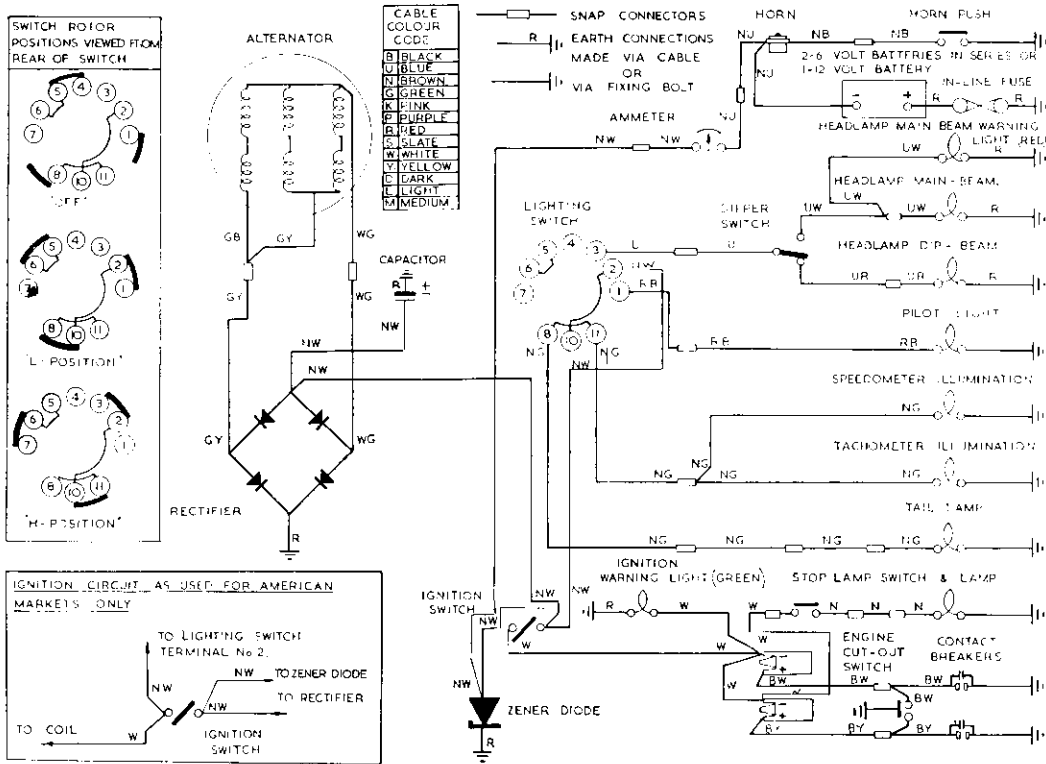 SWITCH ROTOR
POSITIONS VIEWED FROM
REAR OF SWITCH
4
5
6
7
3
2
1
8
10
11
"OFF"
4
5
6
7
3
2
1
8
10
11
"L-POSITION"
4
5
6
7
3
2
1
8
10
11
"H-POSITION"
ALTERNATOR
GB
GY
WG
GY
WG
GY
WG
NW
NW
CAPACITOR
R
+
NW
RECTIFIER
R
CABLE
COLOUR
CODE
B BLACK
U BLUE
N BROWN
G GREEN
K PINK
P PURPLE
R RED
S SLATE
W WHITE
Y YELLOW
D DARK
L LIGHT
M MEDIUM
SNAP CONNECTORS
R
EARTH CONNECTIONS
MADE VIA CABLE
OR
VIA FIXING BOLT
HORN
HORN PUSH
NU
NB
NB
2-6 VOLT BATTERIES IN SERIES OR
1-12 VOLT BATTERY
NU
IN-LINE FUSE
-
+
R
R
AMMETER
NW
NW
NU
HEADLAMP MAIN BEAM WARNING
LIGHT (RED)
UW
R
HEADLAMP MAIN-BEAM.
UW
UW
UW
R
DIPPER
SWITCH
HEADLAMP DIP-BEAM
UR
UR
R
LIGHTING
SWITCH
4
5
6
7
3
2
1
8
10
11
U
U
NW
RB
NG
NG
NW
PILOT LIGHT
RB
RB
SPEEDOMETER ILLUMINATION
NG
TACHOMETER ILLUMINATION
NG
NG
NG
TAIL LAMP
NG
NG
NG
NG
IGNITION
WARNING LIGHT (GREEN)
R
W
STOP LAMP SWITCH & LAMP
W
N
N
IGNITION
SWITCH
NW
NW
NW
W
W
W
W
W
+
BW
+
BY
ENGINE
CUT-OUT
SWITCH
CONTACT
BREAKERS
BW
BW
BW
BY
BY
NW
ZENER DIODE
R
IGNITION CIRCUIT AS USED FOR AMERICAN
MARKETS ONLY
TO LIGHTING SWITCH
TERMINAL No 2.
NW
NW
TO ZENER DIODE
TO RECTIFIER
NW
TO COIL
W
IGNITION
SWITCH